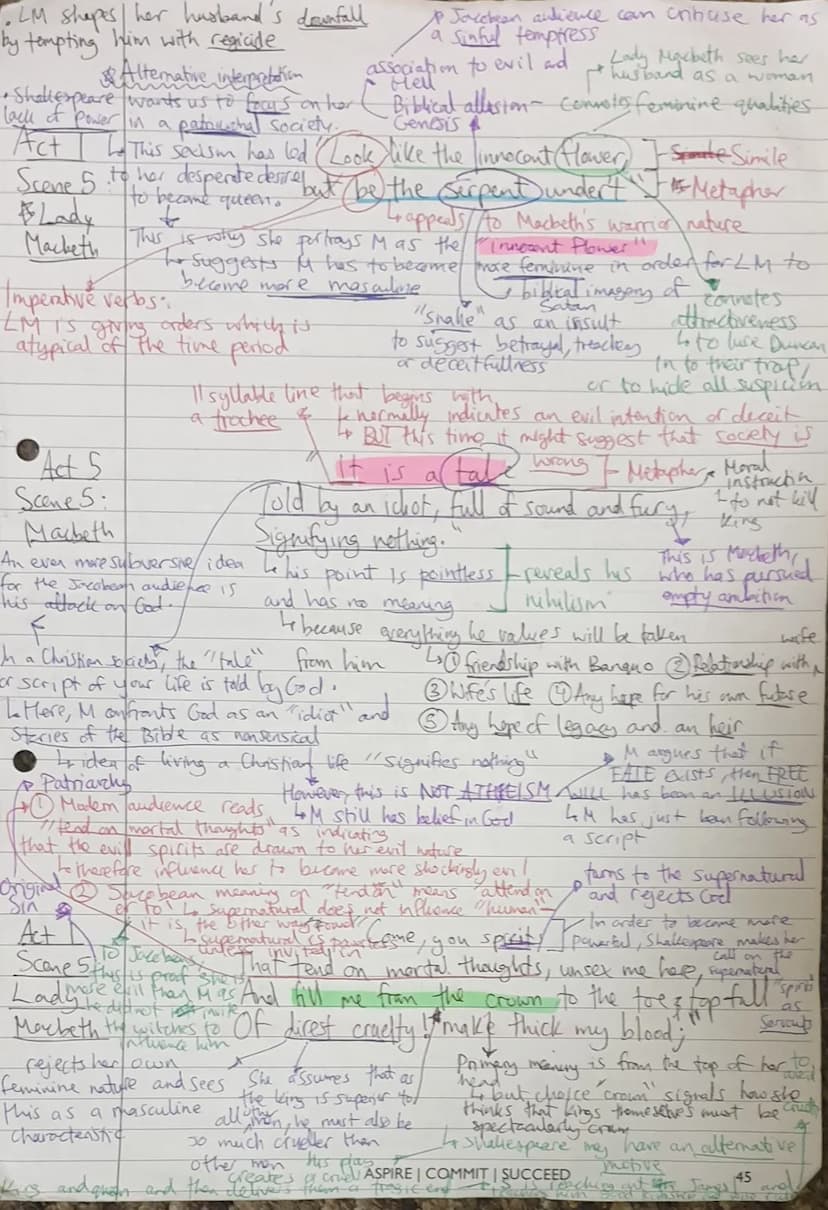 . LM shapes her husband's downfall
by tempting him with regicide
Jacobean audience can criticise her as
a sinful temptress
Alternative interpretation
association to evil and
Hell
Lady Macbeth sees her
husband as a woman
. Shakespeare wants us to focus on her
lack of power in a patriarchal society.
Biblical allusion -
Genesis
connotes feminine qualities
Act 1
Scene 5:
Lady
Macbeth
This sexism has led
to her desperate desire
to become queen.
"Look like the innocent flower,
but be the serpent under't"
Simile
Metaphor
appeals to Macbeth's warrior nature
This is why she portrays M as the "innocent flower"
suggests M has to become more feminine in order for LM to
become more masculine
Imperative verbs:
LM is giving orders which is
atypical of the time period
biblical imagery of
Satan
"snake" as an insult
to suggest betrayal, treachery
or deceitfullness
connotes
attractiveness
to lure Duncan
in to their trap,
or to hide all suspicion
11 syllable line that begins with
a trochee
normally indicates an evil intention or deceit
BUT this time it might suggest that society is
wrong
Act 5
Scene 5:
Macbeth
"It is a tale
Told by an idiot, full of sound and fury,
Signifying nothing."
Metaphor
Moral
instruction
to not kill
king
This is Macbeth,
who has pursued
empty ambition
An even more subversive idea
for the Jacobean audience is
his attack on God.
his point is pointless
and has no meaning
reveals his
nihilism
because everything he values will be taken
from him
① friendship with Banquo ② Relationship with
wife
③ Wife's life ④ Any hope for his own future
⑤ Any hope of legacy and an heir
In a Christian society, the "tale"
or script of your life is told by God.
Here, M confronts God as an "idiot" and
stories of the Bible as nonsensical
idea of living a Christian life "signifies nothing"
However, this is NOT ATHEISM
M still has belief in God
M argues that if
FATE exists, then FREE
WILL has been an ILLUSION
M has just been following
a script
Patriarchy
① Modern audience reads
"tend on mortal thoughts" as indicating
that the evil spirits are drawn to her evil nature
therefore influence her to become more shockingly evil
Original
Sin
② Jacobean meaning of "tend on" means "attend on
or to"
supernatural does not influence "human"
it is the other way round
supernatural is powerless
unless invited in
turns to the supernatural
and rejects God
In order to become more
powerful, Shakespeare makes her
call on the
supernatural
"spirits"
as
servants
Act 1
Scene 5
Lady
Macbeth
To Jacobeans
this is proof she is
more evil than M as
he did not invite
the witches to
influence him
"Come, you spirits
That tend on mortal thoughts, unsex me here,
And fill me from the crown to the toe top full
Of direst cruelty! make thick my blood;"
rejects her own
feminine nature and sees
this as a masculine
characteristic
She assumes that as
the king is superior to
all other men, he must also be
so much crueller than
other men
Primary meaning is from the top of her
head
but choice "crown" signals how she
thinks that kings themselves must be
spectacularly cruel
Shakespeare may have an alternative
motive
his play
creates a cruel
king and queen and then delivers them a tragic end
ASPIRE | COMMIT | SUCCEED
45